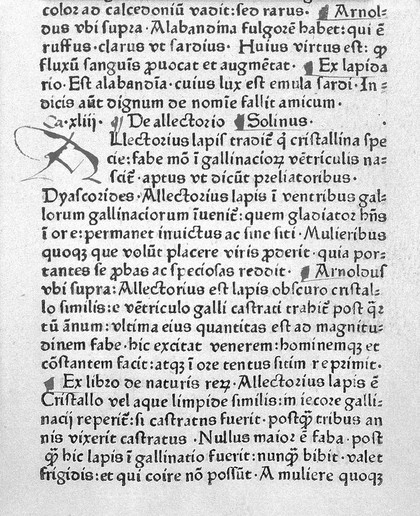 color ad calcedoniū vadit: sed rarus · ¶ Arnol-
dus vbi supra · Alabandina fulgorē habet: qui ē
ruffus · clarus vt sardius · Huius virtus est: ꝙ
fluxū sanguīs ꝓuocat et augmētat · ¶ Ex lapida
rio · Est alabandīa · cuius lux est emula sardi · In-
dicis aūt dignum de nomīe fallit amicum ·
Ca · xliij · ¶ De allectorio ¶ Solinus ·
ALlectorius lapis tradit᷑ ꝙ cristallina spe
cie: fabe mō ī gallinacioꝝ vētriculis na-
scit᷑ · aptus vt dicūt preliatoribus ·
Dyascorides · Allectorius lapis ī ventribus gal-
lorum gallinaciorum īuenit᷑: quem gladiatoꝛ hn̄s
ī ore: permanet invictus ac sine siti · Mulieribus
quoqꝫ que volūt placere viris ꝓderit · quia por-
tantes se ꝓbas ac speciosas reddit · ¶ Arnoldus
vbi supra: Allectorius est lapis obscuro cristal-
lo similis: e vētriculo galli castrati trahit᷑ post q̄r
tū ānum: vltima eius quantitas est ad magnitu-
dinem fabe · hic excitat venerem: hominemqꝫ et
cōstantem facit: atqꝫ ī ore tentus sitim reprimit ·
¶ Ex libro de naturis reꝝ · Allectorius lapis ē
Cristallo vel aque limpide similis: in iecore galli-
nacij reperit᷑: si castratns fuerit · postꝙ̄ tribus an
nis vixerit castratus · Nullus maior ē faba · post
ꝙ̄ hic lapis ī gallinatio fuerit: nunꝙ̄ bibit · valet
frigidis: et qui coire nō possūt · A muliere quoqꝫ